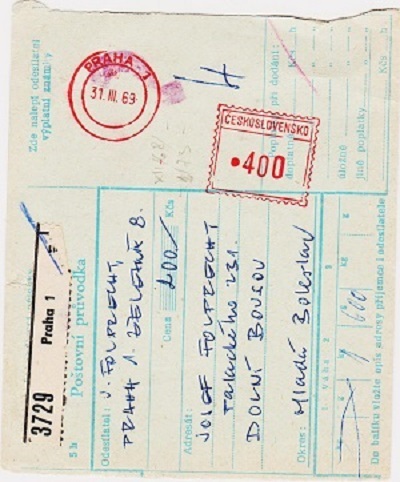 Zde nalepí odesílatel
výplatní známky
PRAHA - 1
31. III. 69
ČESKOSLOVENSKO
•400
při dodání:
Kčs h
doplatné
úložné
jiné poplatky
Kčs h
3729 Praha 1
Poštovní průvodka
Odesílatel: J. FOLPRECHT,
PRAHA 1.
Cena 200 Kčs
Adresát:
JOSEF FOLPRECHT
Palackého 231.
DOLNÍ BOUSOV
Okres: Mladá Boleslav
Do balíku vložte opis adresy příjemce i odesílatele